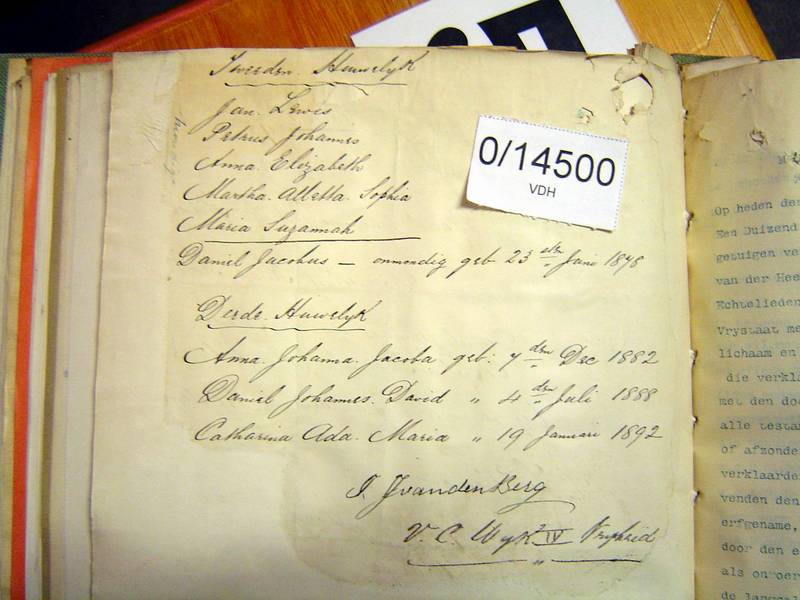 Tweeden Huwelyk
Jan. Lewis
Petrus Johannes
Anna. Elizabeth
Martha. Alletta. Sophia
Maria Suzannah
Daniel Jacobus — onmondig geb 23 ste Juni 1878
Derde. Huwelyk
Anna. Johanna. Jacoba geb: 7 den Dec 1882
Daniel Johannes. David " 4 den Juli 1888
Catharina Ada. Maria " 19 Januari 1892
J. J van den Berg
V. C. Wyk IV Vryheid
0/14500
VDH
Op heden de
Een Duizend
getuigen ve
van der Hee
Echtelieden
Vrystaat me
lichaam en
die verkla
met den doo
alle testam
of afzonde
verklaarde
venden den
erfgename,
door den e
als onroer
de langst